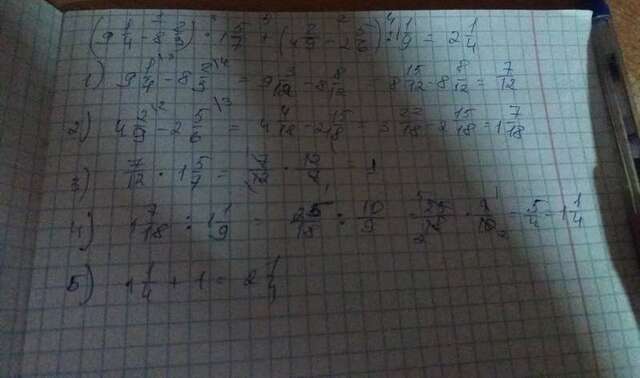 (9 1/4 - 8 2/3) · 1 5/7 + (4 2/9 - 2 5/6) : 1 1/9 = 2 1/4
1) 9 1/4 \3 - 8 2/3 \4 = 9 3/12 - 8 8/12 = 8 15/12 - 8 8/12 = 7/12
2) 4 2/9 \2 - 2 5/6 \3 = 4 4/18 - 2 15/18 = 3 22/18 - 2 15/18 = 1 7/18
3) 7/12 · 1 5/7 = 7/12 · 12/7 = 1
4) 1 7/18 : 1 1/9 = 25/18 : 10/9 = 25/18 · 9/10 = 5/4 = 1 1/4
5) 1 1/4 + 1 = 2 1/4